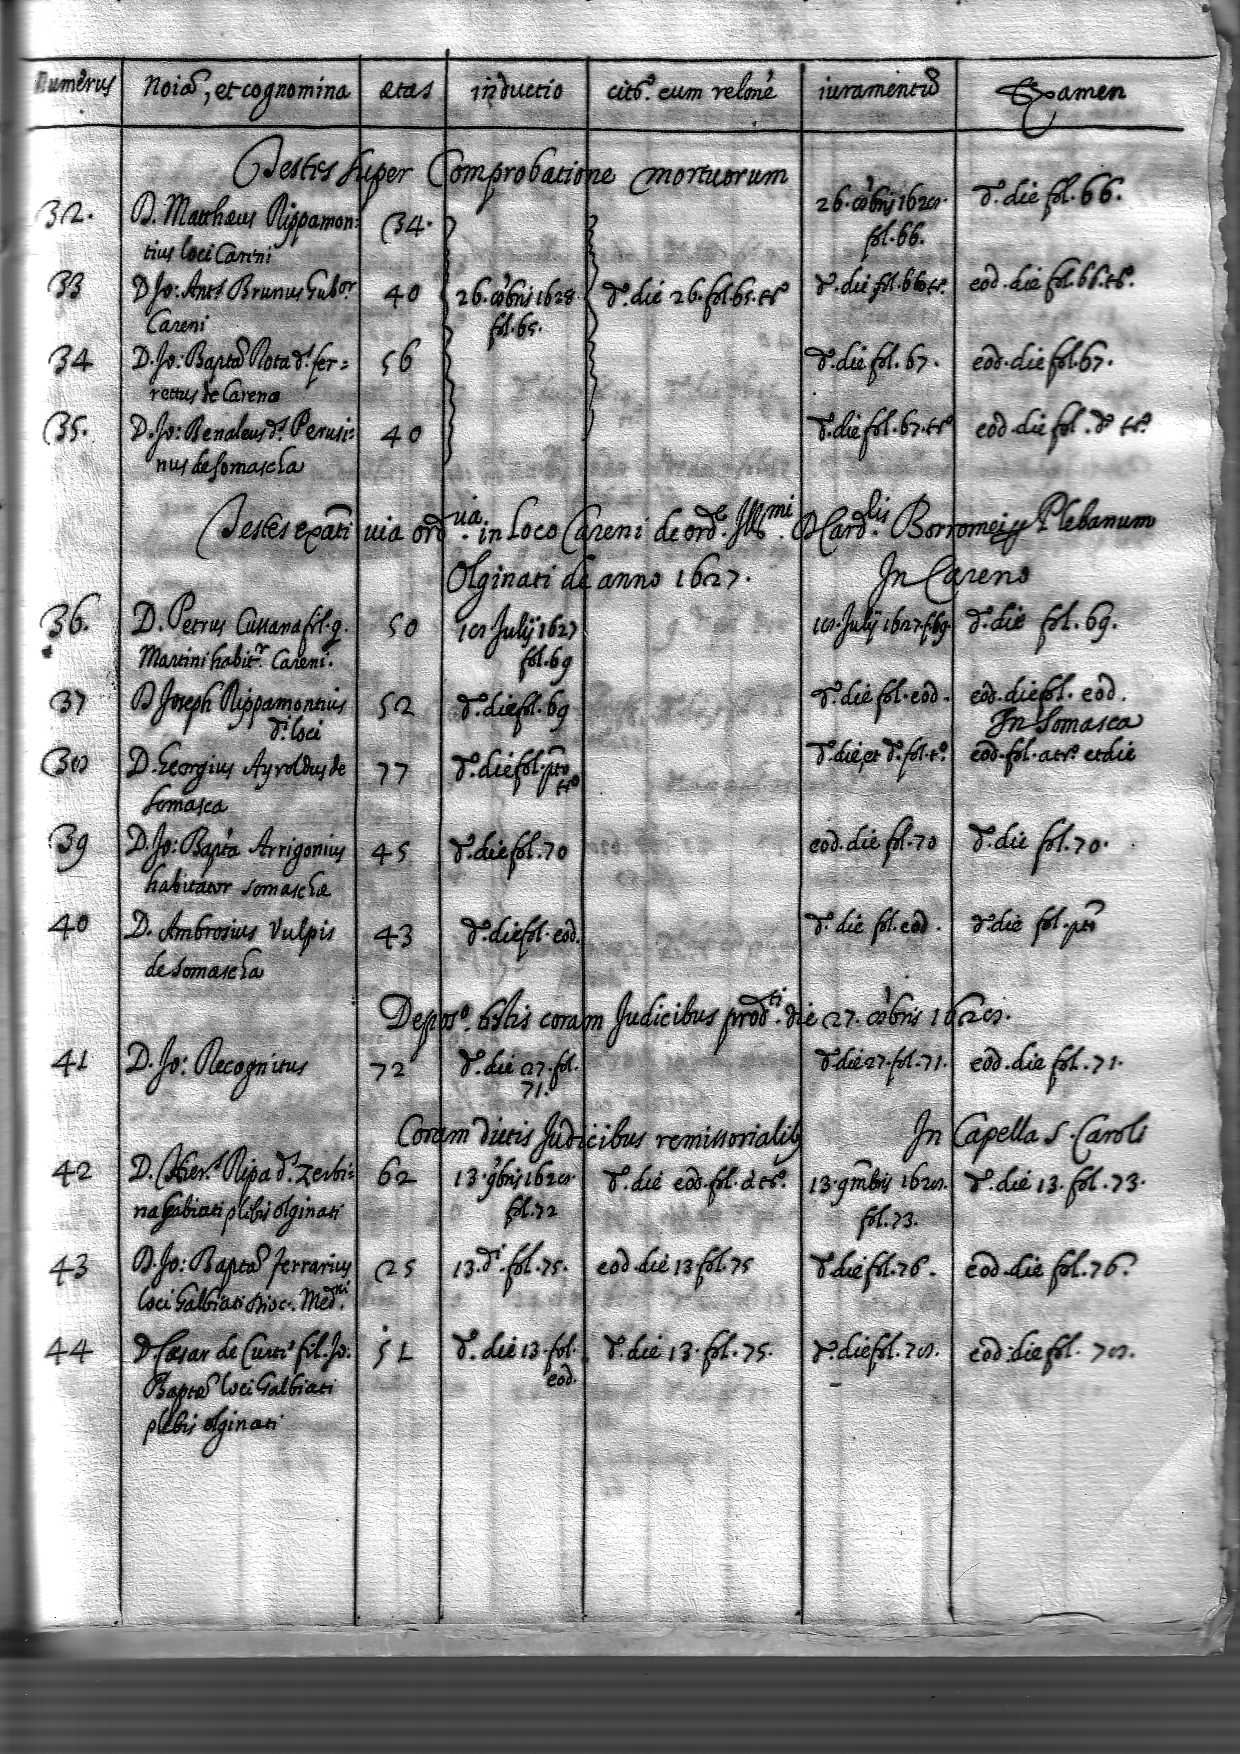 Numerus Noia, et cognomina ætas inductio cito. cum relone iuramentu Examen
Testes super Comprobatione mortuorum
32. D. Mattheus Rippamon: 34. 26. 8bris 1628. d.o die fol. 66.
tius loci Careni fol. 66.
33 D Jo: Ant.s Brunus Gub.or 40 26. 8bris 1628 d.o die 26. fol. 65. t.o d.o die fol. 66 t.o eod. die fol. 66. t.o
Careni fol. 65.
34 D. Jo: Bapta Rota d.s fer= 56 d.o die fol. 67. eod. die fol. 67.
rettus de Careno
35. D. Jo: Benaleus d.s Perusi= 40 d.o die fol. 67. t.o eod. die fol. d.o t.o
nus de Somascha
Testes exāti uia ord.ua in Loco Careni de ord.e Ill.mi D Card.lis Borromei per Plebanum
Olginati de anno 1627. In Careno
36. D. Petrus Cussana fil. q. 50 18 Julij 1627 18. Julij 1627. f. 69. d.o die fol. 69.
Martini habit.r Careni. fol. 69
37 D Joseph Rippamontius 52 d.o die fol. 69 d.o die fol. eod. eod. die fol. eod.
d.i loci In Somasca
38 D. Georgius Ayroldus de 77 d.o die fol. pto d.o die et d.o fol. t.o eod. fol. a t.o et die
Somasca t.o
39 D. Jo: Bapta Arrigonius 45 d.o die fol. 70 eod. die fol. 70 d.o die fol. 70.
habitator Somaschæ
40 D. Ambrosius Vulpis 43 d.o die fol. eod. d.o die fol. eod. d.o die fol. pto
de Somascha
Depos.o testis coram Judicibus prod.ti die 27. 8bris 1628.
41 D. Jo: Recognitus 72 d.o die 27. fol. d.o die 27. fol. 71. eod. die fol. 71.
71.
Coram dictis Judicibus remissorialib. In Capella S. Caroli
42 D. Hier.s Ripa d.s Zerbi= 62 13. 9bris 1628. d.o die eod. fol. d. t.o 13. 9mbris 1628. d.o die 13. fol. 73.
na Gabiati plebis Olginati fol. 72 fol. 73.
43 D. Jo: Bapta ferrarius 25 13. d.i fol. 75. eod. die 13. fol. 75 d.o die fol. 76. eod. die fol. 76.
loci Galbiati dioc. Med.ni
44 D. Cæsar de Curti.s fil. Jo: 51 d.o die 13. fol. d.o die 13. fol. 75. d.o die fol. 78. eod. die fol. 78.
Baptæ loci Galbiati eod.
plebis Olginati